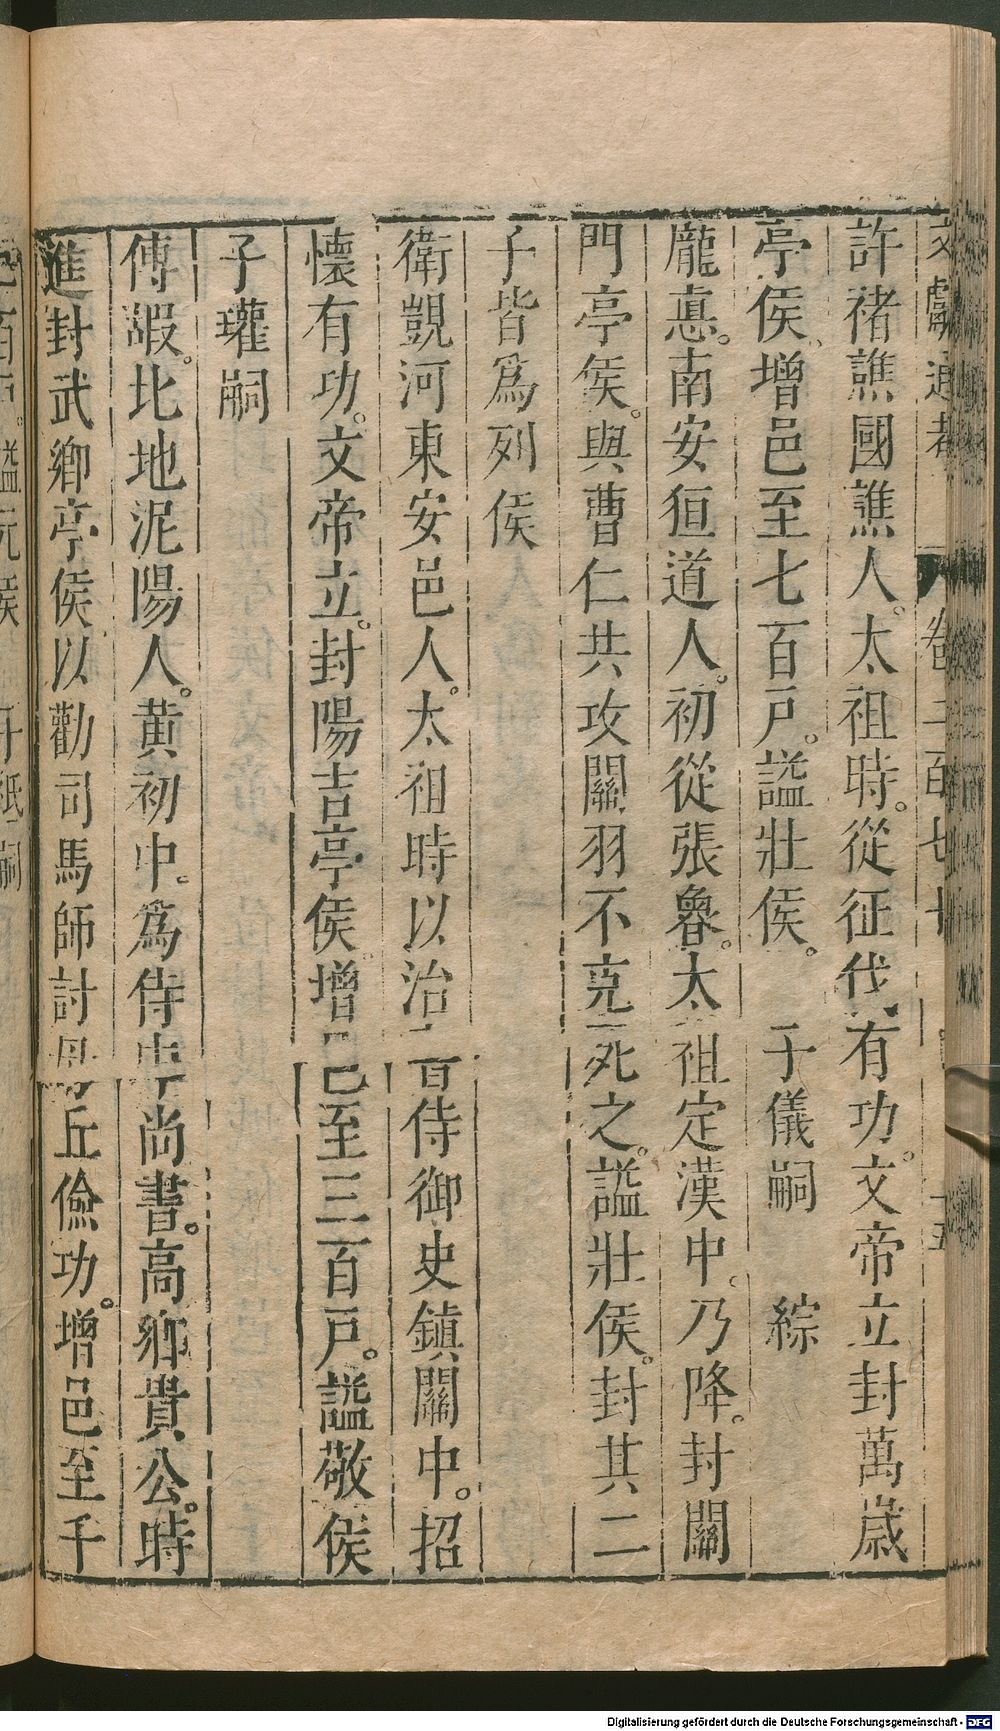 文獻通考 卷二百七十 十五
許褚譙國譙人。太祖時。從征伐有功。文帝立封萬歲
亭侯。增邑至七百戸。謚壯侯。 子儀嗣 綜
龐悳。南安狟道人。初從張魯。太祖定漢中。乃降。封關
門亭侯。與曹仁共攻關羽不克死之。謚壯侯。封其二
子皆爲列侯
衛覬河東安邑人。太祖時以治書侍御史鎮關中。招
懷有功。文帝立。封陽吉亭侯。增邑至三百戸。謚敬侯
子瓘嗣
傅嘏。北地泥陽人。黃初中。爲侍中尚書。高鄉貴公。時
進封武鄉亭侯。以勸司馬師討毋丘儉功。增邑至千